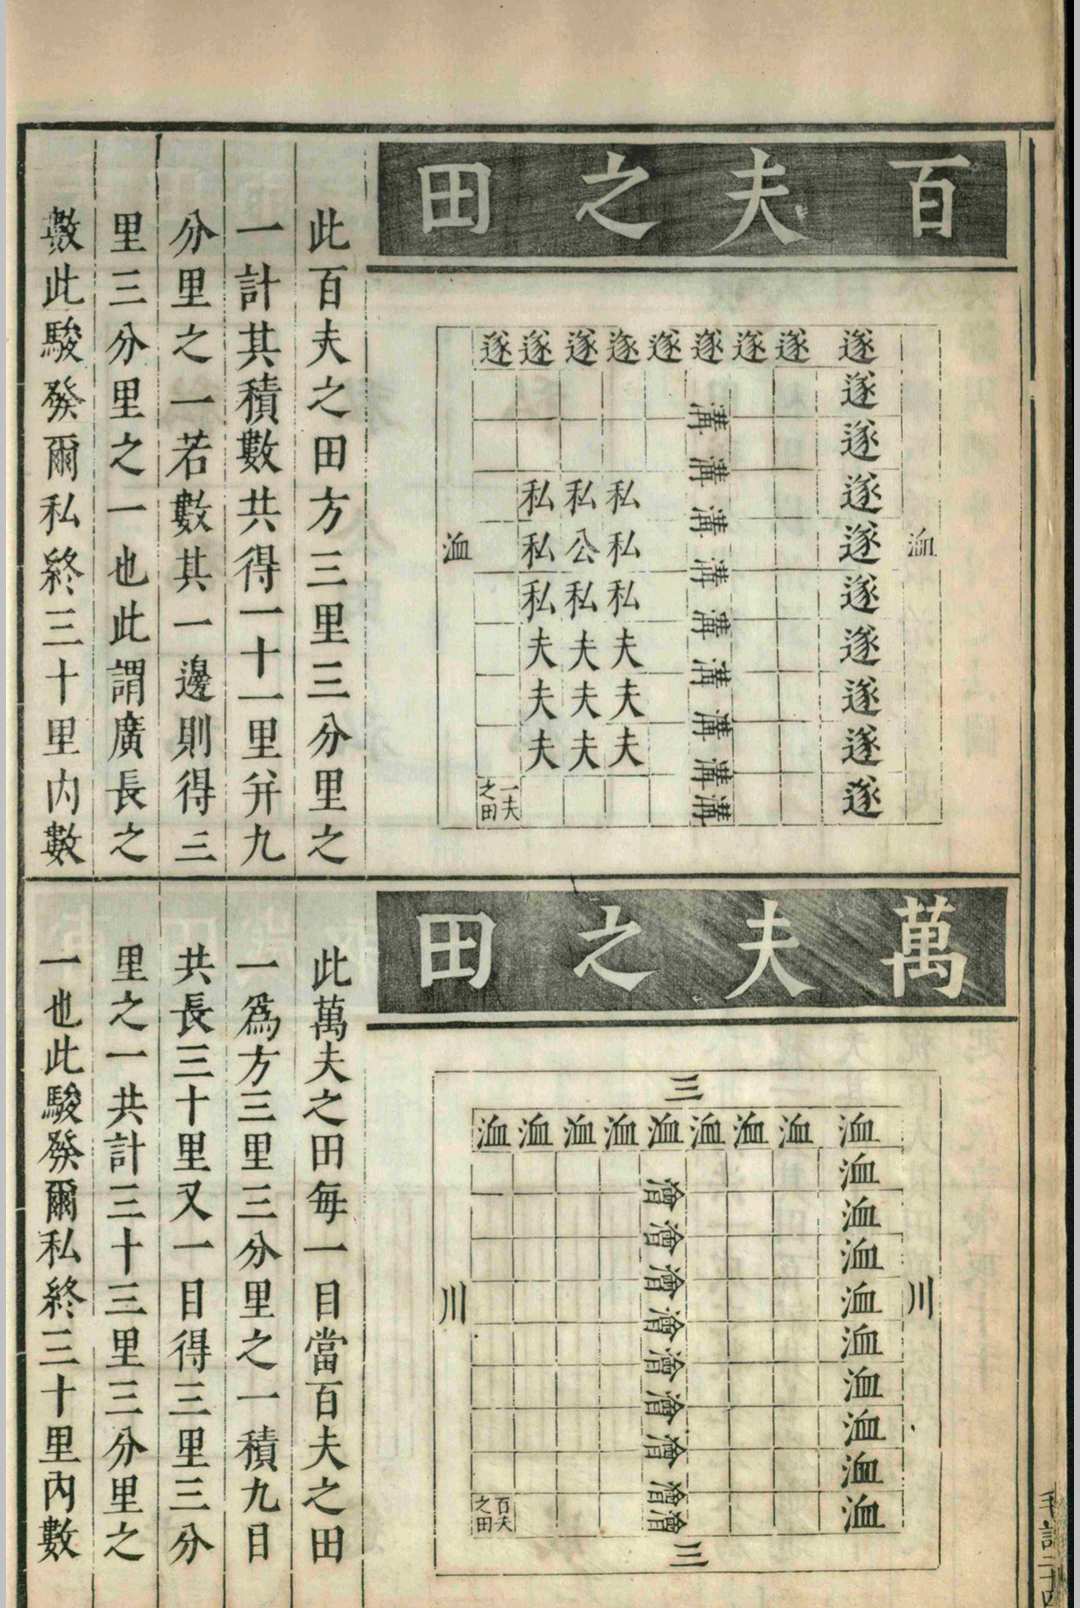 百夫之田
遂遂遂遂遂遂遂遂遂
遂
遂
遂
遂
遂
遂
遂
遂
遂
溝
溝
溝
溝
溝
溝
溝
溝
溝
私私私
私公私
私私私
夫夫夫
夫夫夫
夫夫夫
一夫
之田
洫
洫
此百夫之田方三里三分里之
一計其積數共得一十一里幷九
分里之一若數其一邊則得三
里三分里之一也此謂廣長之
數此駿發爾私終三十里內數
萬夫之田
三
洫洫洫洫洫洫洫洫洫
洫
洫
洫
洫
洫
洫
洫
洫
洫
澮
澮
澮
澮
澮
澮
澮
澮
澮
百夫
之田
川
川
三
此萬夫之田每一目當百夫之田
一爲方三里三分里之一積九目
共長三十里又一目得三里三分
里之一共計三十三里三分里之
一也此駿發爾私終三十里內數